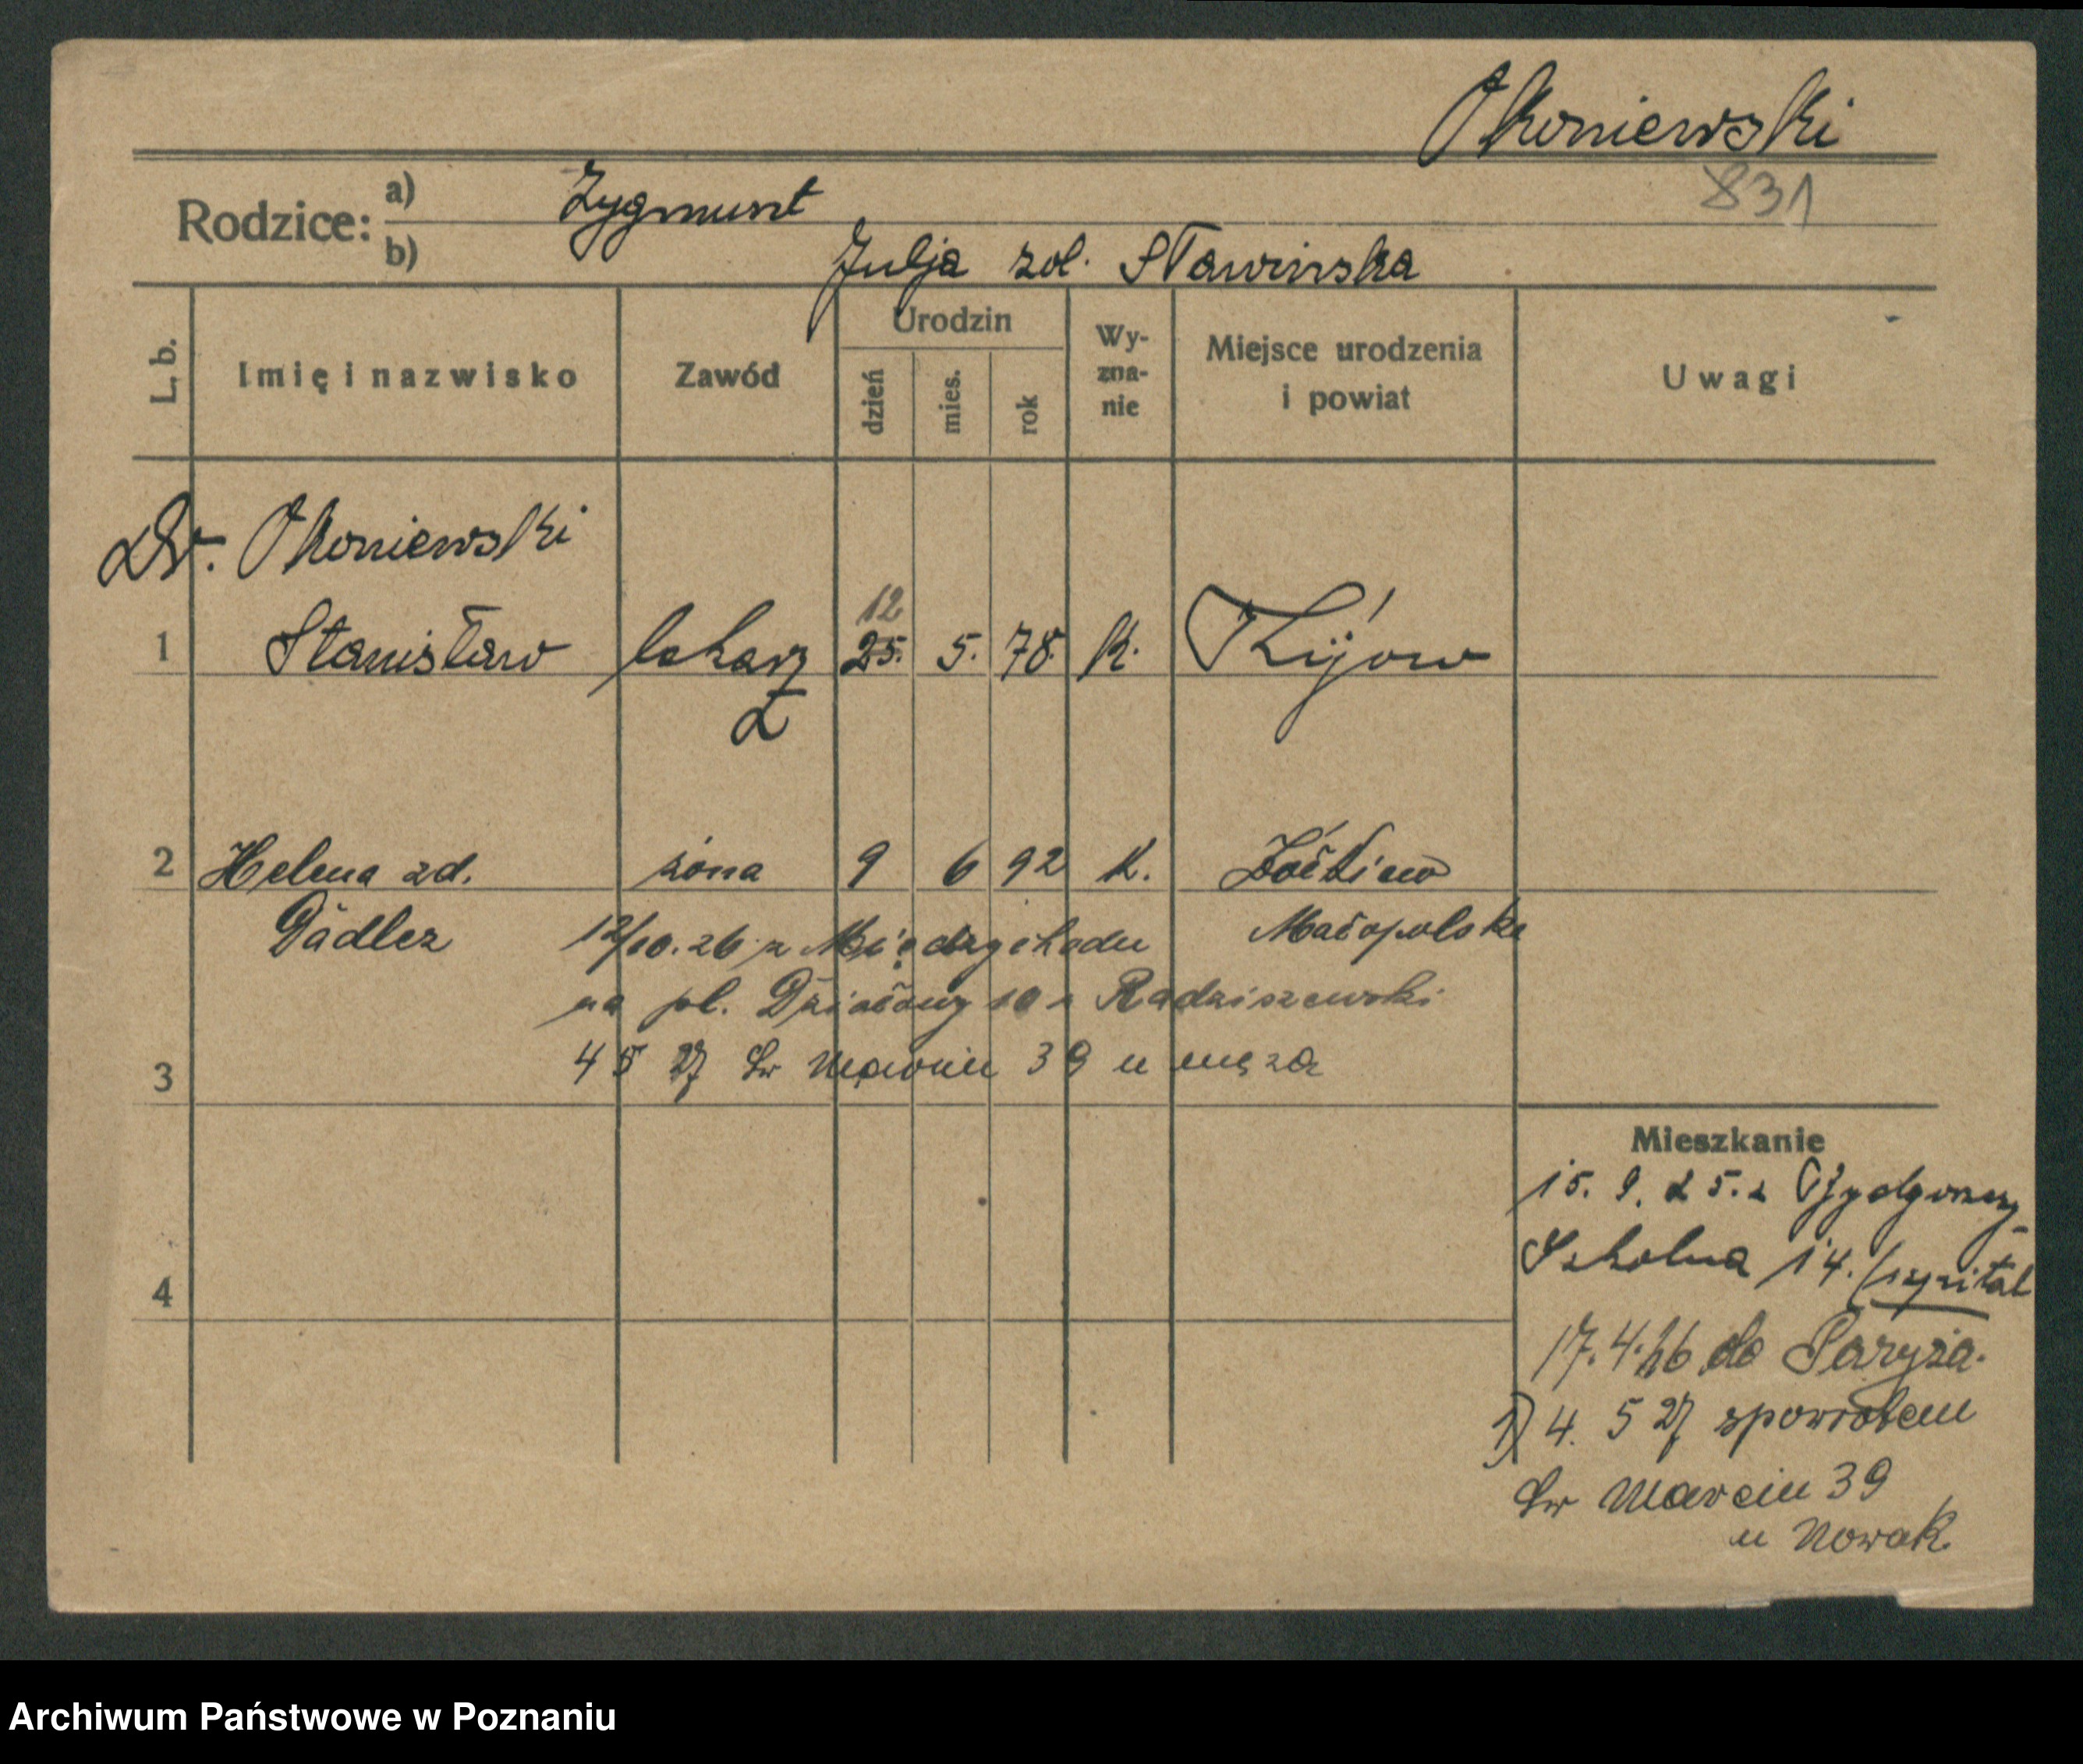 Okoniewski
831
Rodzice: a) Zygmunt
b) Julja zd. Sławińska
L. b. Imię i nazwisko Zawód Urodzin dzień mies. rok Wy-zna-nie Miejsce urodzenia i powiat Uwagi
Dr. Okoniewski
12
1 Stanisław lekarz 25. 5. 78. K. Kijów
Ł
2 Helena zd. żona 9 6 92 K. Żółkiew
Dädlez Małopolska
12/10.26 z Międzychodu
na pl. Działowy 10 Radziszewski
3 4 5 27 Św Marcin 39 u męża
4
Mieszkanie
15. 9. 25. z Bydgoszczy
Szkolna 14. (szpital
17.4.26 do Paryża.
1) 4. 5 27 spowrotem
Św Marcin 39
u Nowak.
Archiwum Państwowe w Poznaniu